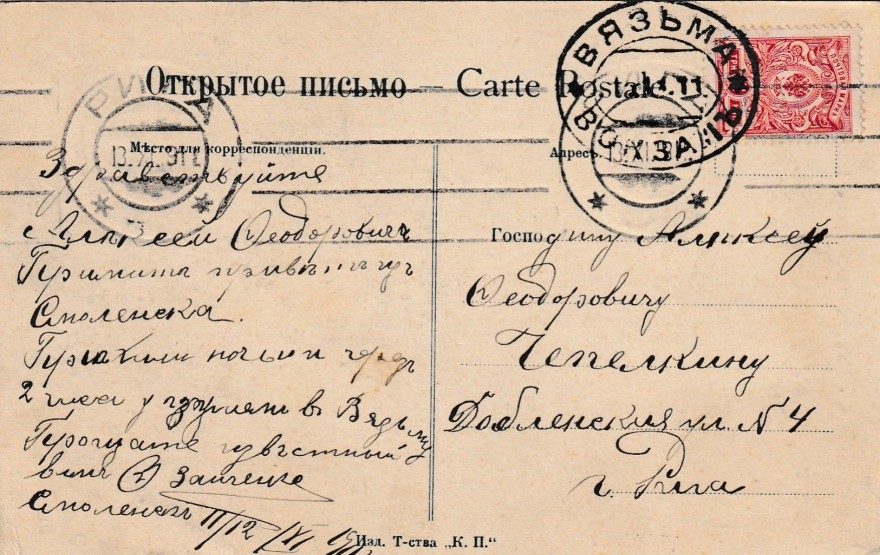 Открытое письмо — Carte Postale
ВЯЗЬМА
ВОКЗАЛ
11.11
РИГА
13.11.911
Мѣсто для корреспонденціи.
Адресъ.
Здравствуйте
Алексей Феодоровичъ
Примите приветъ изъ
Смоленска.
ночью
2 часа в Вязьму
Прощайте известный
вамъ Зайченко
Смоленскъ 11/12 XI
Господину Алексею
Феодоровичу
Чепелкину
Добленская ул. N 4
г. Рига
Изд. Т-ства „К. П.“